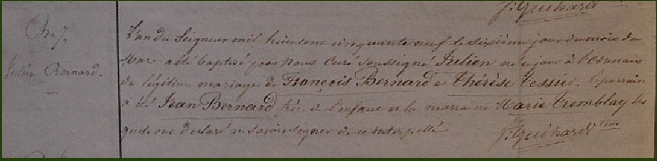 J. Guihard
B. 7.
Julien Bernard.
L'an du Seigneur mil huit cent cinquante neuf le sixième jour du mois de
Mars a été baptisé par nous Curé soussigné Julien né ce jour à
du légitime mariage de François Bernard et Thérèse Tessier. Le parrain
a été Jean Bernard, frère de l'enfant et la marraine Marie Tremblay les
quels ont déclaré ne savoir signer de ce interpellé.
J. Guihard